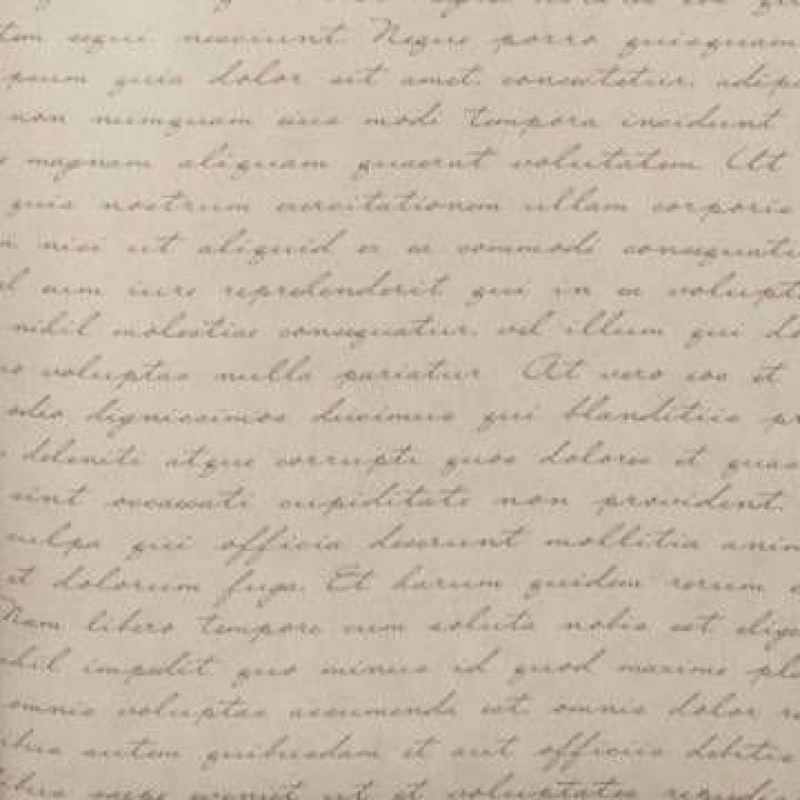 tem sequi nesciunt. Neque porro quisquam
psum quia dolor sit amet, consectetur, adipi
non numquam eius modi tempora incidunt
magnam aliquam quaerat voluptatem. Ut
quis nostrum exercitationem ullam corporis
m nisi ut aliquid ex ea commodi consequatu
l eum iure reprehenderit qui in ea volupta
nihil molestiae consequatur, vel illum qui do
uo voluptas nulla pariatur. At vero eos et
odio dignissimos ducimus qui blanditiis pr
deleniti atque corrupti quos dolores et quas
sint occaecati cupiditate non provident,
culpa qui officia deserunt mollitia anim
et dolorum fuga. Et harum quidem rerum
Nam libero tempore cum soluta nobis est elige
nihil impedit quo minus id quod maxime pla
omnis voluptas assumenda est, omnis dolor re
ibus autem quibusdam et aut officiis debitis
ibus saepe eveniet ut et voluptates repudia